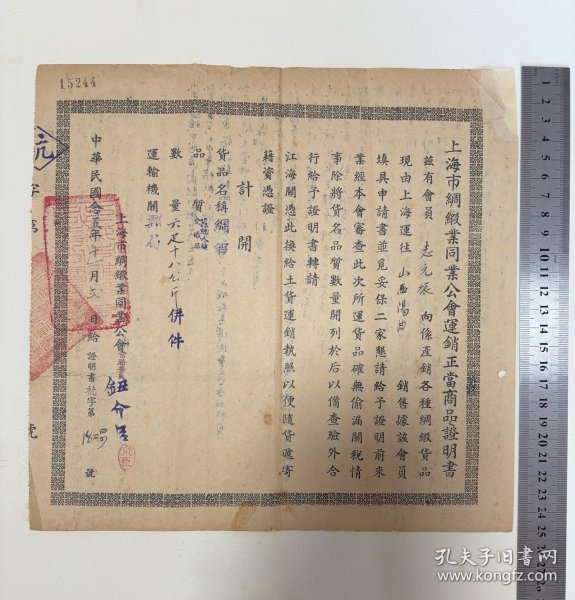 15244
上海市綢緞業同業公會運銷正當商品證明書
茲有會員 志元振 向係產銷各種綢緞貨品
現由上海運往 山西陽曲 銷售據該會員
填具申請書並覓妥保二家懇請給予證明前來
業經本會審查此次所運貨品確無偷漏關稅情
事除將貨名品質數量開列於后以備查驗外合
行給予證明書轉請
江海關憑此換給土貨運銷執照以便隨貨遞寄
藉資憑證
計開
貨品名稱 綢緞
品質
數量 六疋十八公斤 併件
運輸機關 郵局
上海市綢緞業同業公會
鈕介臣
中華民國念五年十一月 日給 證明書杭字第 號
孔夫子旧书网
www.kongfz.com